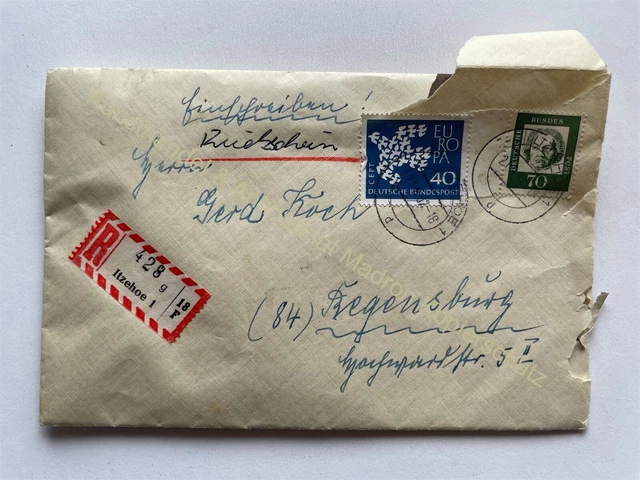 Einschreiben!
Rückschein
Herrn
Gerd Koch
(84) Regensburg
Hochwardstr. 5 II
EU
RO
PA
CEPT
40
DEUTSCHE BUNDESPOST
DEUTSCHE
BUNDES
POST
70
R
428
g
Itzehoe 1
18
F